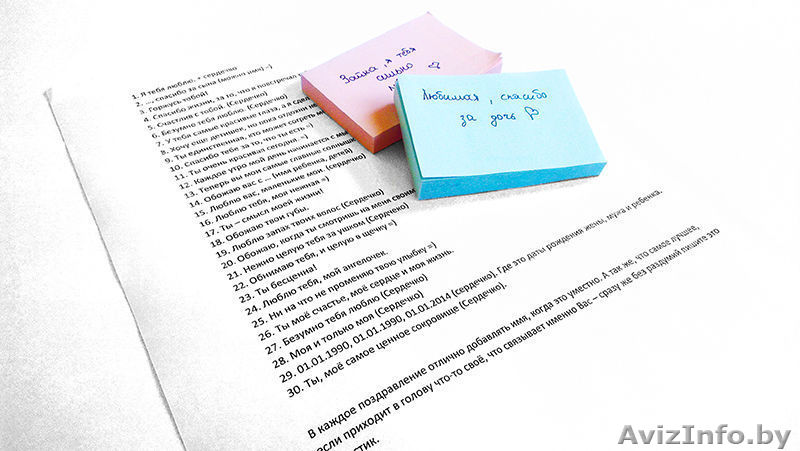 1. Я тебя люблю. + сердечко
2. ..., спасибо за сына (можно имя) :-)
3. Горжусь тобой!
4. Спасибо жизни, за то, что я повстречал
5. Счастлив с тобой. (Сердечко)
6. Безумно тебя люблю. (Сердечко)
7. У тебя самые красивые глаза, а я
8. Хочу еще детишек, но пока
9. Ты единственная, кто может согреть
10. Спасибо тебе за то, что ты есть =)
11. Ты очень красивая сегодня. =)
12. Каждое утро мой день начинается с
13. Теперь вы мои самые главные
14. Обожаю вас с ... (имя ребенка, детей)
15. Люблю вас, маленькие мои. (сердечко)
16. Люблю тебя, моя нежная =)
17. Ты – смысл моей жизни!
18. Обожаю твои губы.
19. Люблю запах твоих волос (Сердечко)
20. Обожаю, когда ты смотришь на меня своим
21. Нежно целую тебя за ушком (Сердечко)
22. Обнимаю тебя, и целую в щечку =)
23. Ты бесценна!
24. Люблю тебя, мой ангелочек.
25. Ни на что не променяю твою улыбку =)
26. Ты моё счастье, моё сердце и моя жизнь.
27. Безумно тебя люблю (Сердечко)
28. Моя и только моя (Сердечко)
29. 01.01.1990, 01.01.1990, 01.01.2014 (сердечко). Где это даты рождения жены, мужа и ребенка.
30. Ты, моё самое ценное сокровище (Сердечко).
В каждое поздравление отлично добавлять имя, когда это уместно. А так же, что самое лучшее,
если приходит в голову что-то своё, что связывает именно Вас – сразу же без раздумий пишите это
стик.
Зайка, я тебя
сильно
Любимая, спасибо
за дочь
AvizInfo.by